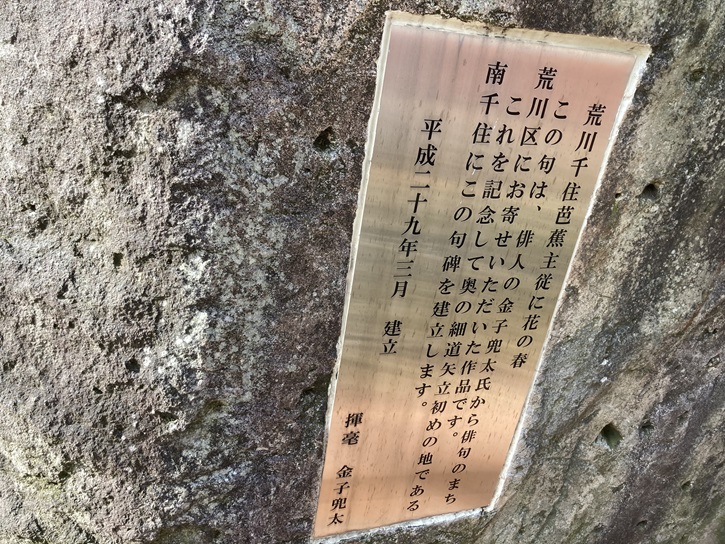 荒川千住芭蕉主従に花の春
この句は、俳人の金子兜太氏から俳句のまち
荒川区にお寄せいただいた作品です。
これを記念して奥の細道矢立初めの地である
南千住にこの句碑を建立します。
平成二十九年三月　建立
揮毫　金子兜太